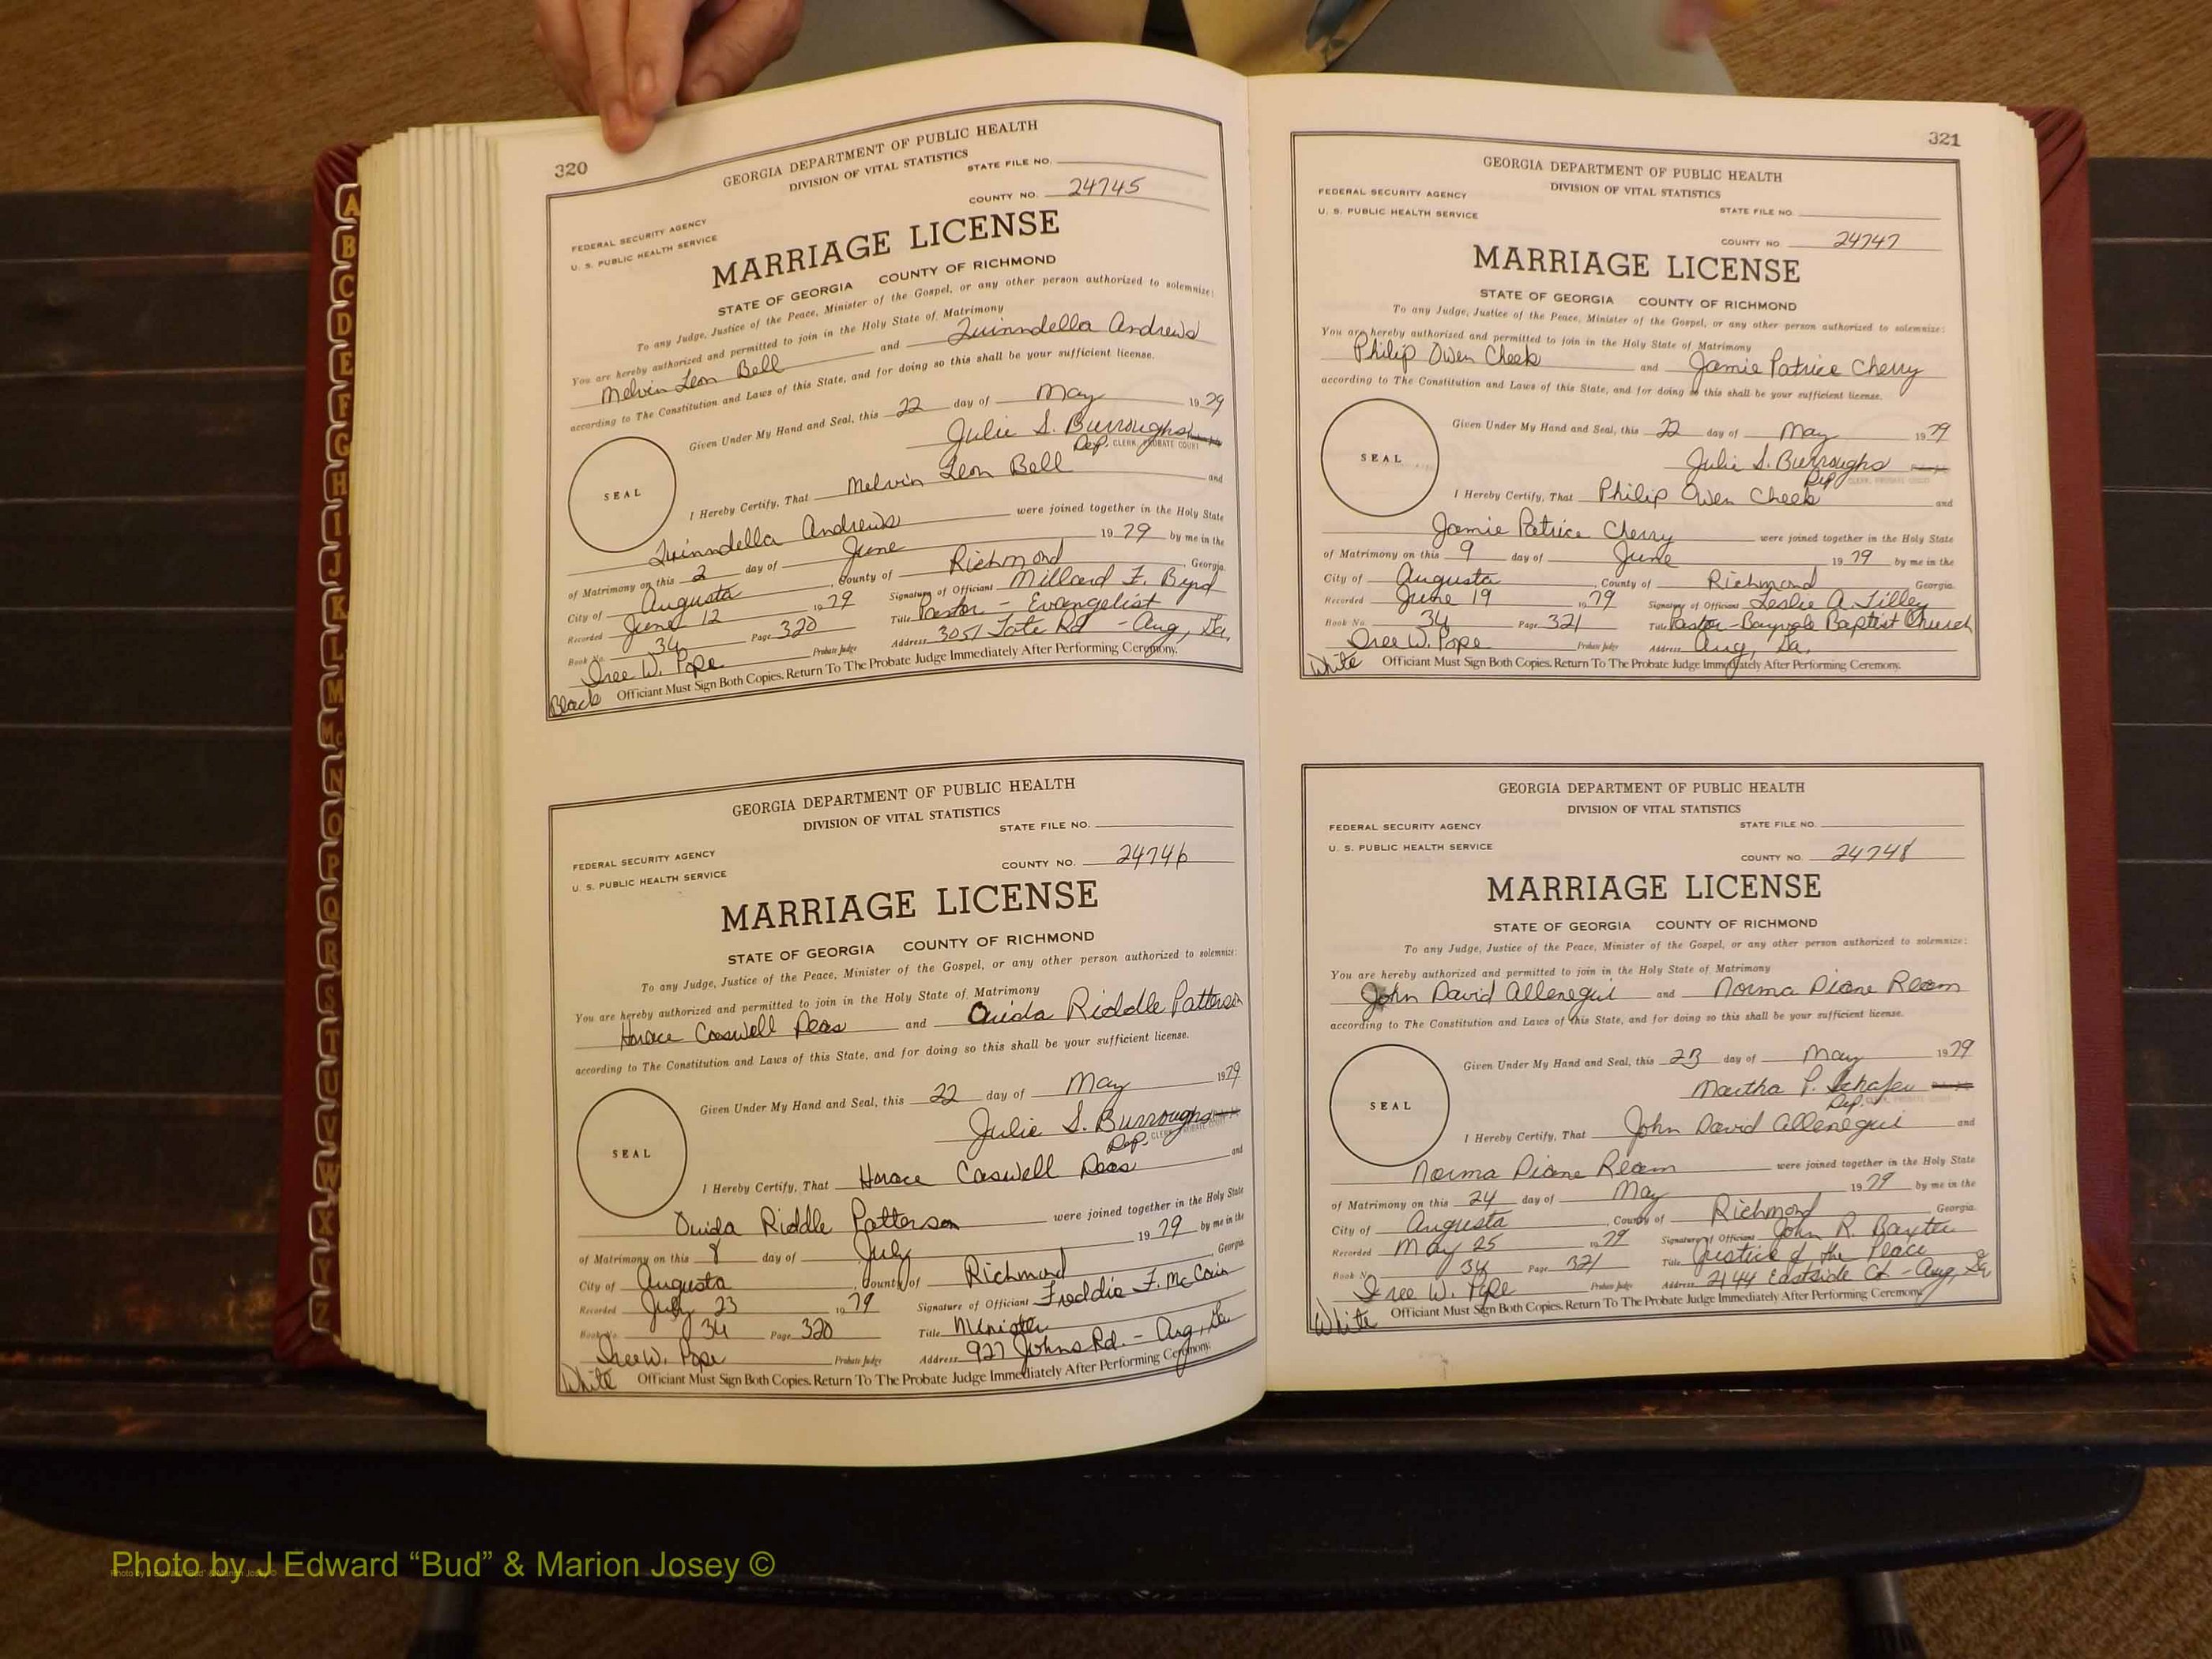 320
GEORGIA DEPARTMENT OF PUBLIC HEALTH
DIVISION OF VITAL STATISTICS
STATE FILE NO.
COUNTY NO. 24745
FEDERAL SECURITY AGENCY
U. S. PUBLIC HEALTH SERVICE
MARRIAGE LICENSE
STATE OF GEORGIA COUNTY OF RICHMOND
To any Judge, Justice of the Peace, Minister of the Gospel, or any other person authorized to solemnize:
You are hereby authorized and permitted to join in the Holy State of Matrimony
Melvin Leon Bell and Quinndella Andrews
according to The Constitution and Laws of this State, and for doing so this shall be your sufficient license.
Given Under My Hand and Seal, this 22 day of May 1979
Julie S. Burroughs
Dep. CLERK, PROBATE COURT
SEAL
I Hereby Certify, That Melvin Leon Bell and
Quinndella Andrews were joined together in the Holy State
of Matrimony on this 2 day of June 1979 by me in the
City of Augusta, County of Richmond, Georgia.
Recorded June 12 1979 Signature of Officiant Millard F. Byrd
Title Pastor - Evangelist
Book No. 34 Page 320 Address 3051 Tate Rd - Aug, Ga.
Iree W. Pope Probate Judge
Black Officiant Must Sign Both Copies. Return To The Probate Judge Immediately After Performing Ceremony.
GEORGIA DEPARTMENT OF PUBLIC HEALTH
DIVISION OF VITAL STATISTICS
STATE FILE NO.
FEDERAL SECURITY AGENCY
U. S. PUBLIC HEALTH SERVICE
COUNTY NO. 24746
MARRIAGE LICENSE
STATE OF GEORGIA COUNTY OF RICHMOND
To any Judge, Justice of the Peace, Minister of the Gospel, or any other person authorized to solemnize:
You are hereby authorized and permitted to join in the Holy State of Matrimony
Horace Caswell Peas and Ouida Riddle Patterson
according to The Constitution and Laws of this State, and for doing so this shall be your sufficient license.
Given Under My Hand and Seal, this 22 day of May 1979
Julie S. Burroughs
Dep. CLERK, PROBATE COURT
SEAL
I Hereby Certify, That Horace Caswell Peas and
Ouida Riddle Patterson were joined together in the Holy State
of Matrimony on this 8 day of July 1979 by me in the
City of Augusta, County of Richmond, Georgia
Recorded July 23 1979 Signature of Officiant Freddie F. McCain
Book No. 34 Page 320 Title Minister
Iree W. Pope Probate Judge Address 927 Johns Rd. - Aug, Ga
White Officiant Must Sign Both Copies. Return To The Probate Judge Immediately After Performing Ceremony.
321
GEORGIA DEPARTMENT OF PUBLIC HEALTH
DIVISION OF VITAL STATISTICS
FEDERAL SECURITY AGENCY
U. S. PUBLIC HEALTH SERVICE
STATE FILE NO.
COUNTY NO 24747
MARRIAGE LICENSE
STATE OF GEORGIA COUNTY OF RICHMOND
To any Judge, Justice of the Peace, Minister of the Gospel, or any other person authorized to solemnize:
You are hereby authorized and permitted to join in the Holy State of Matrimony
Philip Owen Cheek and Jamie Patrice Cherry
according to The Constitution and Laws of this State, and for doing so this shall be your sufficient license.
Given Under My Hand and Seal, this 22 day of May 1979
Julie S. Burroughs
Dep CLERK, PROBATE COURT
SEAL
I Hereby Certify, That Philip Owen Cheek and
Jamie Patrice Cherry were joined together in the Holy State
of Matrimony on this 9 day of June 1979 by me in the
City of Augusta, County of Richmond Georgia
Recorded June 19 1979 Signature of Officiant Leslie A. Tilley
Book No. 34 Page 321 Title Pastor - Bayvale Baptist Church
Iree W. Pope Probate Judge Address Aug, Ga.
White Officiant Must Sign Both Copies. Return To The Probate Judge Immediately After Performing Ceremony.
GEORGIA DEPARTMENT OF PUBLIC HEALTH
DIVISION OF VITAL STATISTICS
FEDERAL SECURITY AGENCY
U. S. PUBLIC HEALTH SERVICE
STATE FILE NO.
COUNTY NO. 24748
MARRIAGE LICENSE
STATE OF GEORGIA COUNTY OF RICHMOND
To any Judge, Justice of the Peace, Minister of the Gospel, or any other person authorized to solemnize:
You are hereby authorized and permitted to join in the Holy State of Matrimony
John David Allenegui and Norma Diane Ream
according to The Constitution and Laws of this State, and for doing so this shall be your sufficient license.
Given Under My Hand and Seal, this 23 day of May 1979
Martha P. Schafer
Dep. CLERK, PROBATE COURT
SEAL
I Hereby Certify, That John David Allenegui and
Norma Diane Ream were joined together in the Holy State
of Matrimony on this 24 day of May 1979 by me in the
City of Augusta, County of Richmond, Georgia
Recorded May 25 1979 Signature of Officiant John R. Baxter
Title Justice of the Peace
Book No. 34 Page 321 Address 2144 Eastside Ct - Aug, Ga
Iree W. Pope Probate Judge
White Officiant Must Sign Both Copies. Return To The Probate Judge Immediately After Performing Ceremony
A
B
C
D
E
F
G
H
I
J
K
L
M
Mc
N
O
P
Q
R
S
T
U
V
W
X
Y
Z
Photo by J Edward “Bud” & Marion Josey ©
Photo by J Edward “Bud” & Marion Josey ©